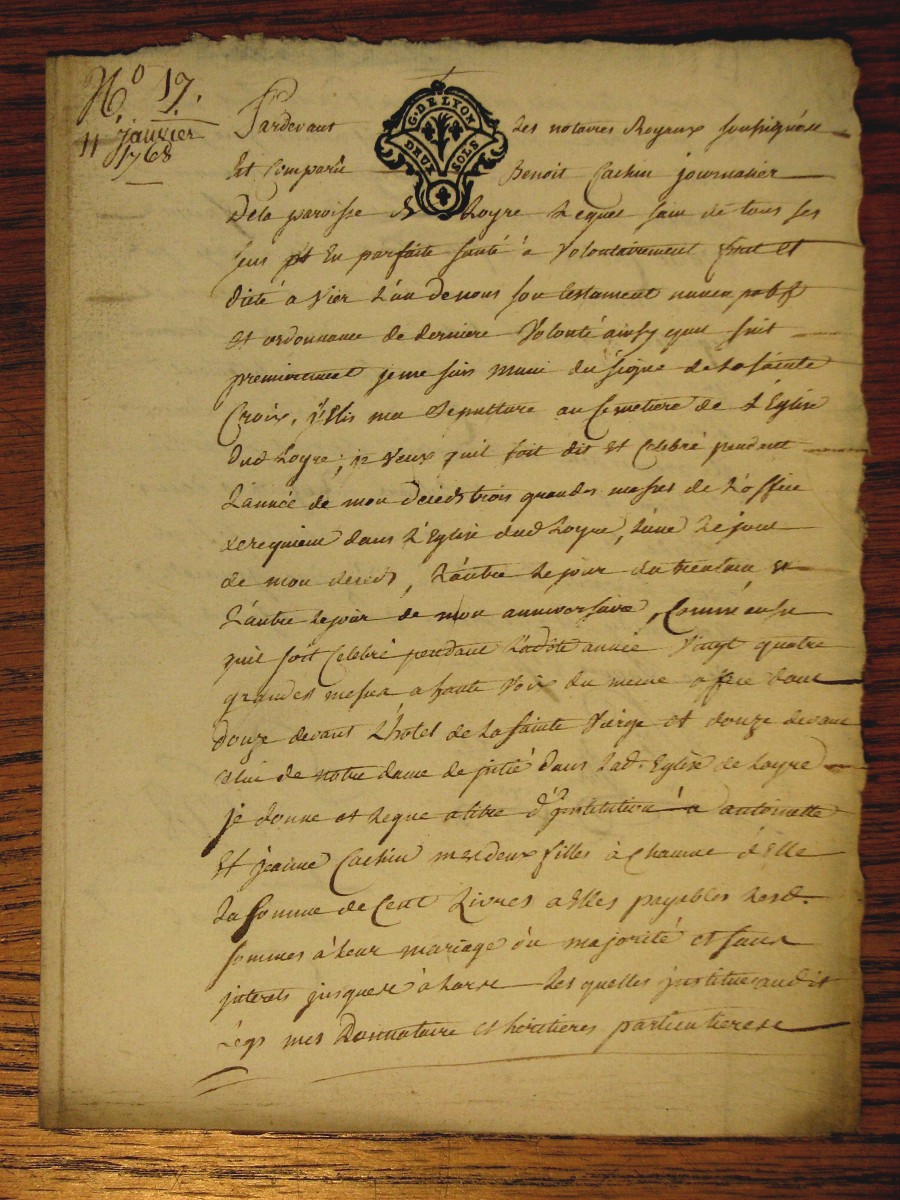 N.° 17.
11 janvier
1768
G. DE LYON
DEUX SOLS
Pardevant les notaires Royaux soussignés
Est comparû Benoit Cachin journalier
Dela paroisse de Loyre Lequel sain de tous ses
sens et En parfaite santé à Volontairement fait et
dicté à l'un denous son testament nuncupatif
et ordonnance de derniere Volonté ainsy quil suit
premierement je me suis muni du signe de la sainte
Croix, j'Elis ma Sepulture au Cemetiere de L'Eglise
dud Loyre; je veux quil soit dit et Celebré pendant
L'année de mon décéds trois grandes messes de L'office
derequiem dans L'Eglise dud Loyre, L'une Le jour
de mon deceds, L'autre Le jour du trentain et
L'autre Le jour de mon anniversaire, Comme aussy
quil soit Celebré pendant Ladite année Vingt quatre
grandes messes a haute Voix du meme office dont
douze devant L'hotel de La sainte Vierge et douze devant
Celui de notre dame de pitié dans Lad. Eglise de Loyre
je donne et Legue a titre d'institution à antoinette
Et jeanne Cachin mes deux filles à Chacune d'Elle
La somme de Cent Livres a Elles payables Lesd.
sommes à leur mariage ou majorité et sans
interets jusques à Lors Les quelles j'institue audit
Legs mes Donnataire et héritières particulieres